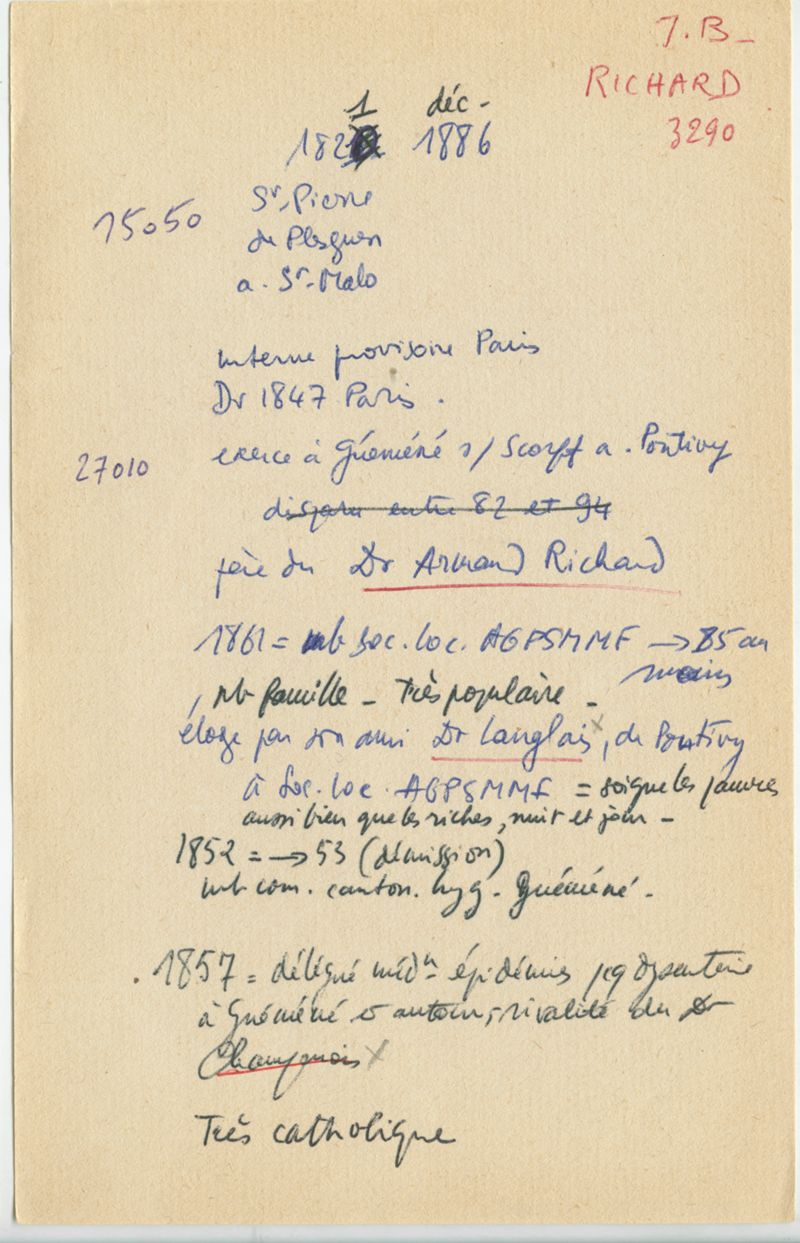 J.B_
RICHARD
3290
1 déc -
182 1886
15050 St. Pierre
de Plesguen
a. St. Malo
interne provisoire Paris
Dr 1847 Paris.
27010 exerce à Guéméné s/ Scorff a. Pontivy
disparu entre 82 et 94
père du Dr Armand Richard
1861 = mb Soc. loc. AGPSMMF → 85 au
moins
, mb famille _ Très populaire _
éloge par son ami Dr Langlais x, de Pontivy
à Soc. loc. AGPSMMF = soigne les pauvres
aussi bien que les riches, nuit et jour _
1852 = → 53 (démission)
mb com. canton. hyg. Guéméné.
. 1857 = délégué médn épidémies pq dysenterie
à Guéméné et autour, rivalité du Dr
x
Très catholique